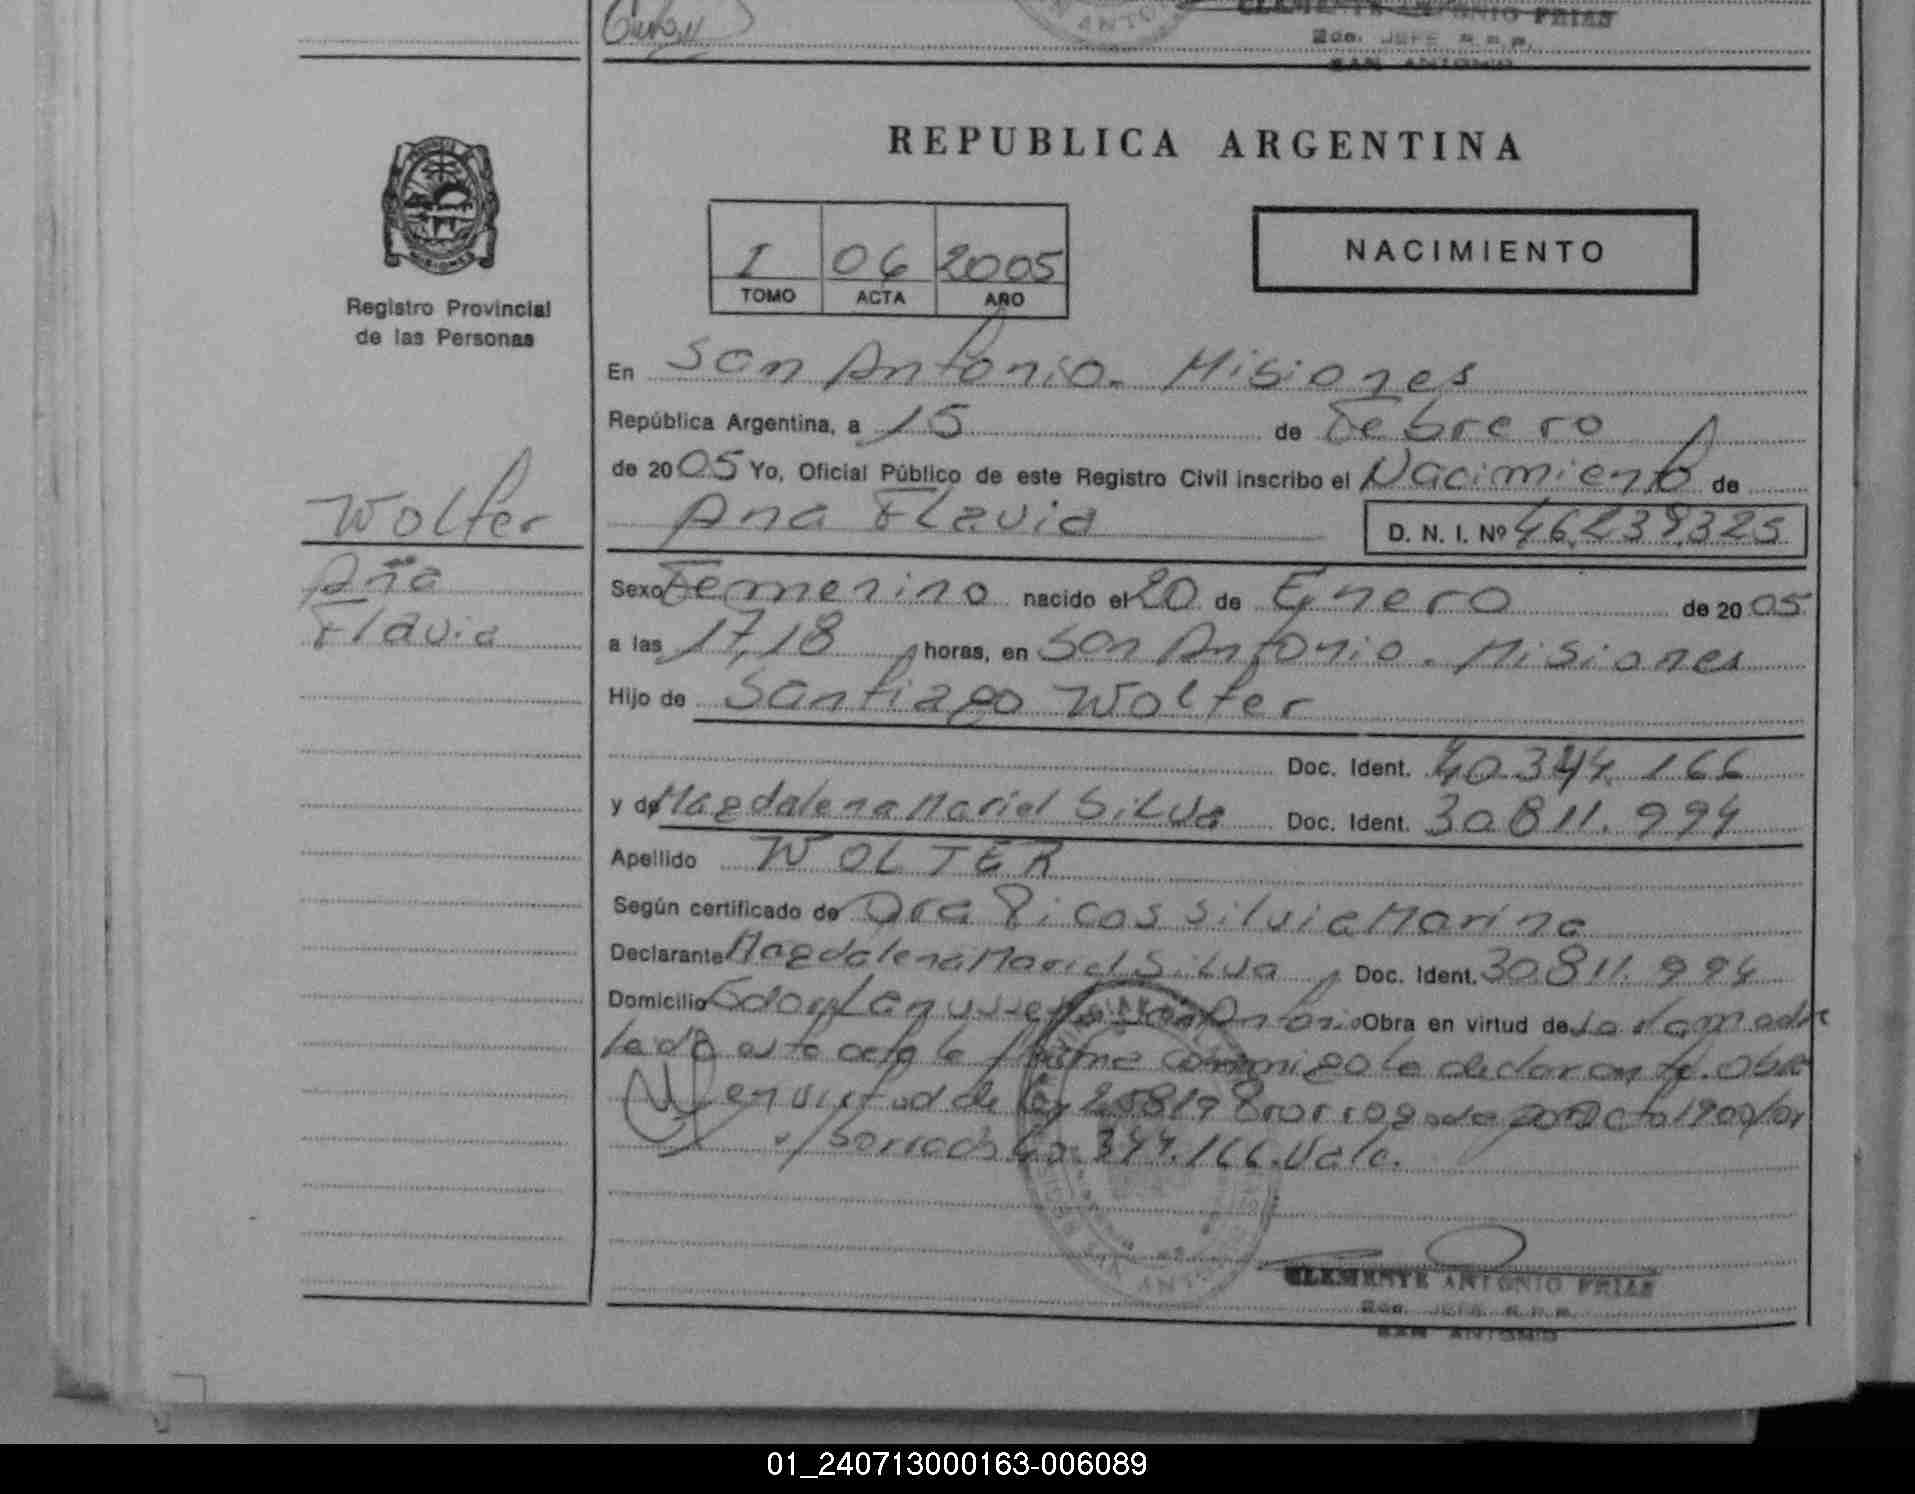 CLEMENTE ANTONIO FRIAS
2do. JEFE R.P.P.
SAN ANTONIO
REPUBLICA ARGENTINA
I 06 2005
TOMO ACTA AÑO
NACIMIENTO
MISIONES
Registro Provincial
de las Personas
En San Antonio. Misiones
República Argentina, a 15 de Febrero
de 2005 Yo, Oficial Público de este Registro Civil inscribo el Nacimiento de
Ana Flavia D. N. I. Nº 46.239.325
Wolter
Ana
Flavia
Sexo Femenino nacido el 20 de Enero de 2005
a las 17,18 horas, en San Antonio. Misiones
Hijo de Santiago Wolter
Doc. Ident. 40.344.166
y de Magdalena Mariel Silva Doc. Ident. 30.811.994
Apellido WOLTER
Según certificado de Dra Picas Silvia Marina
Declarante Magdalena Mariel Silva Doc. Ident. 30.811.994
Domicilio San Antonio Obra en virtud de
la declarante. Obra
en virtud de ley 25819 Prorrogada
borrado 40.344.166. Vale.
CLEMENTE ANTONIO FRIAS
2do. JEFE R.P.P.
SAN ANTONIO
01_240713000163-006089